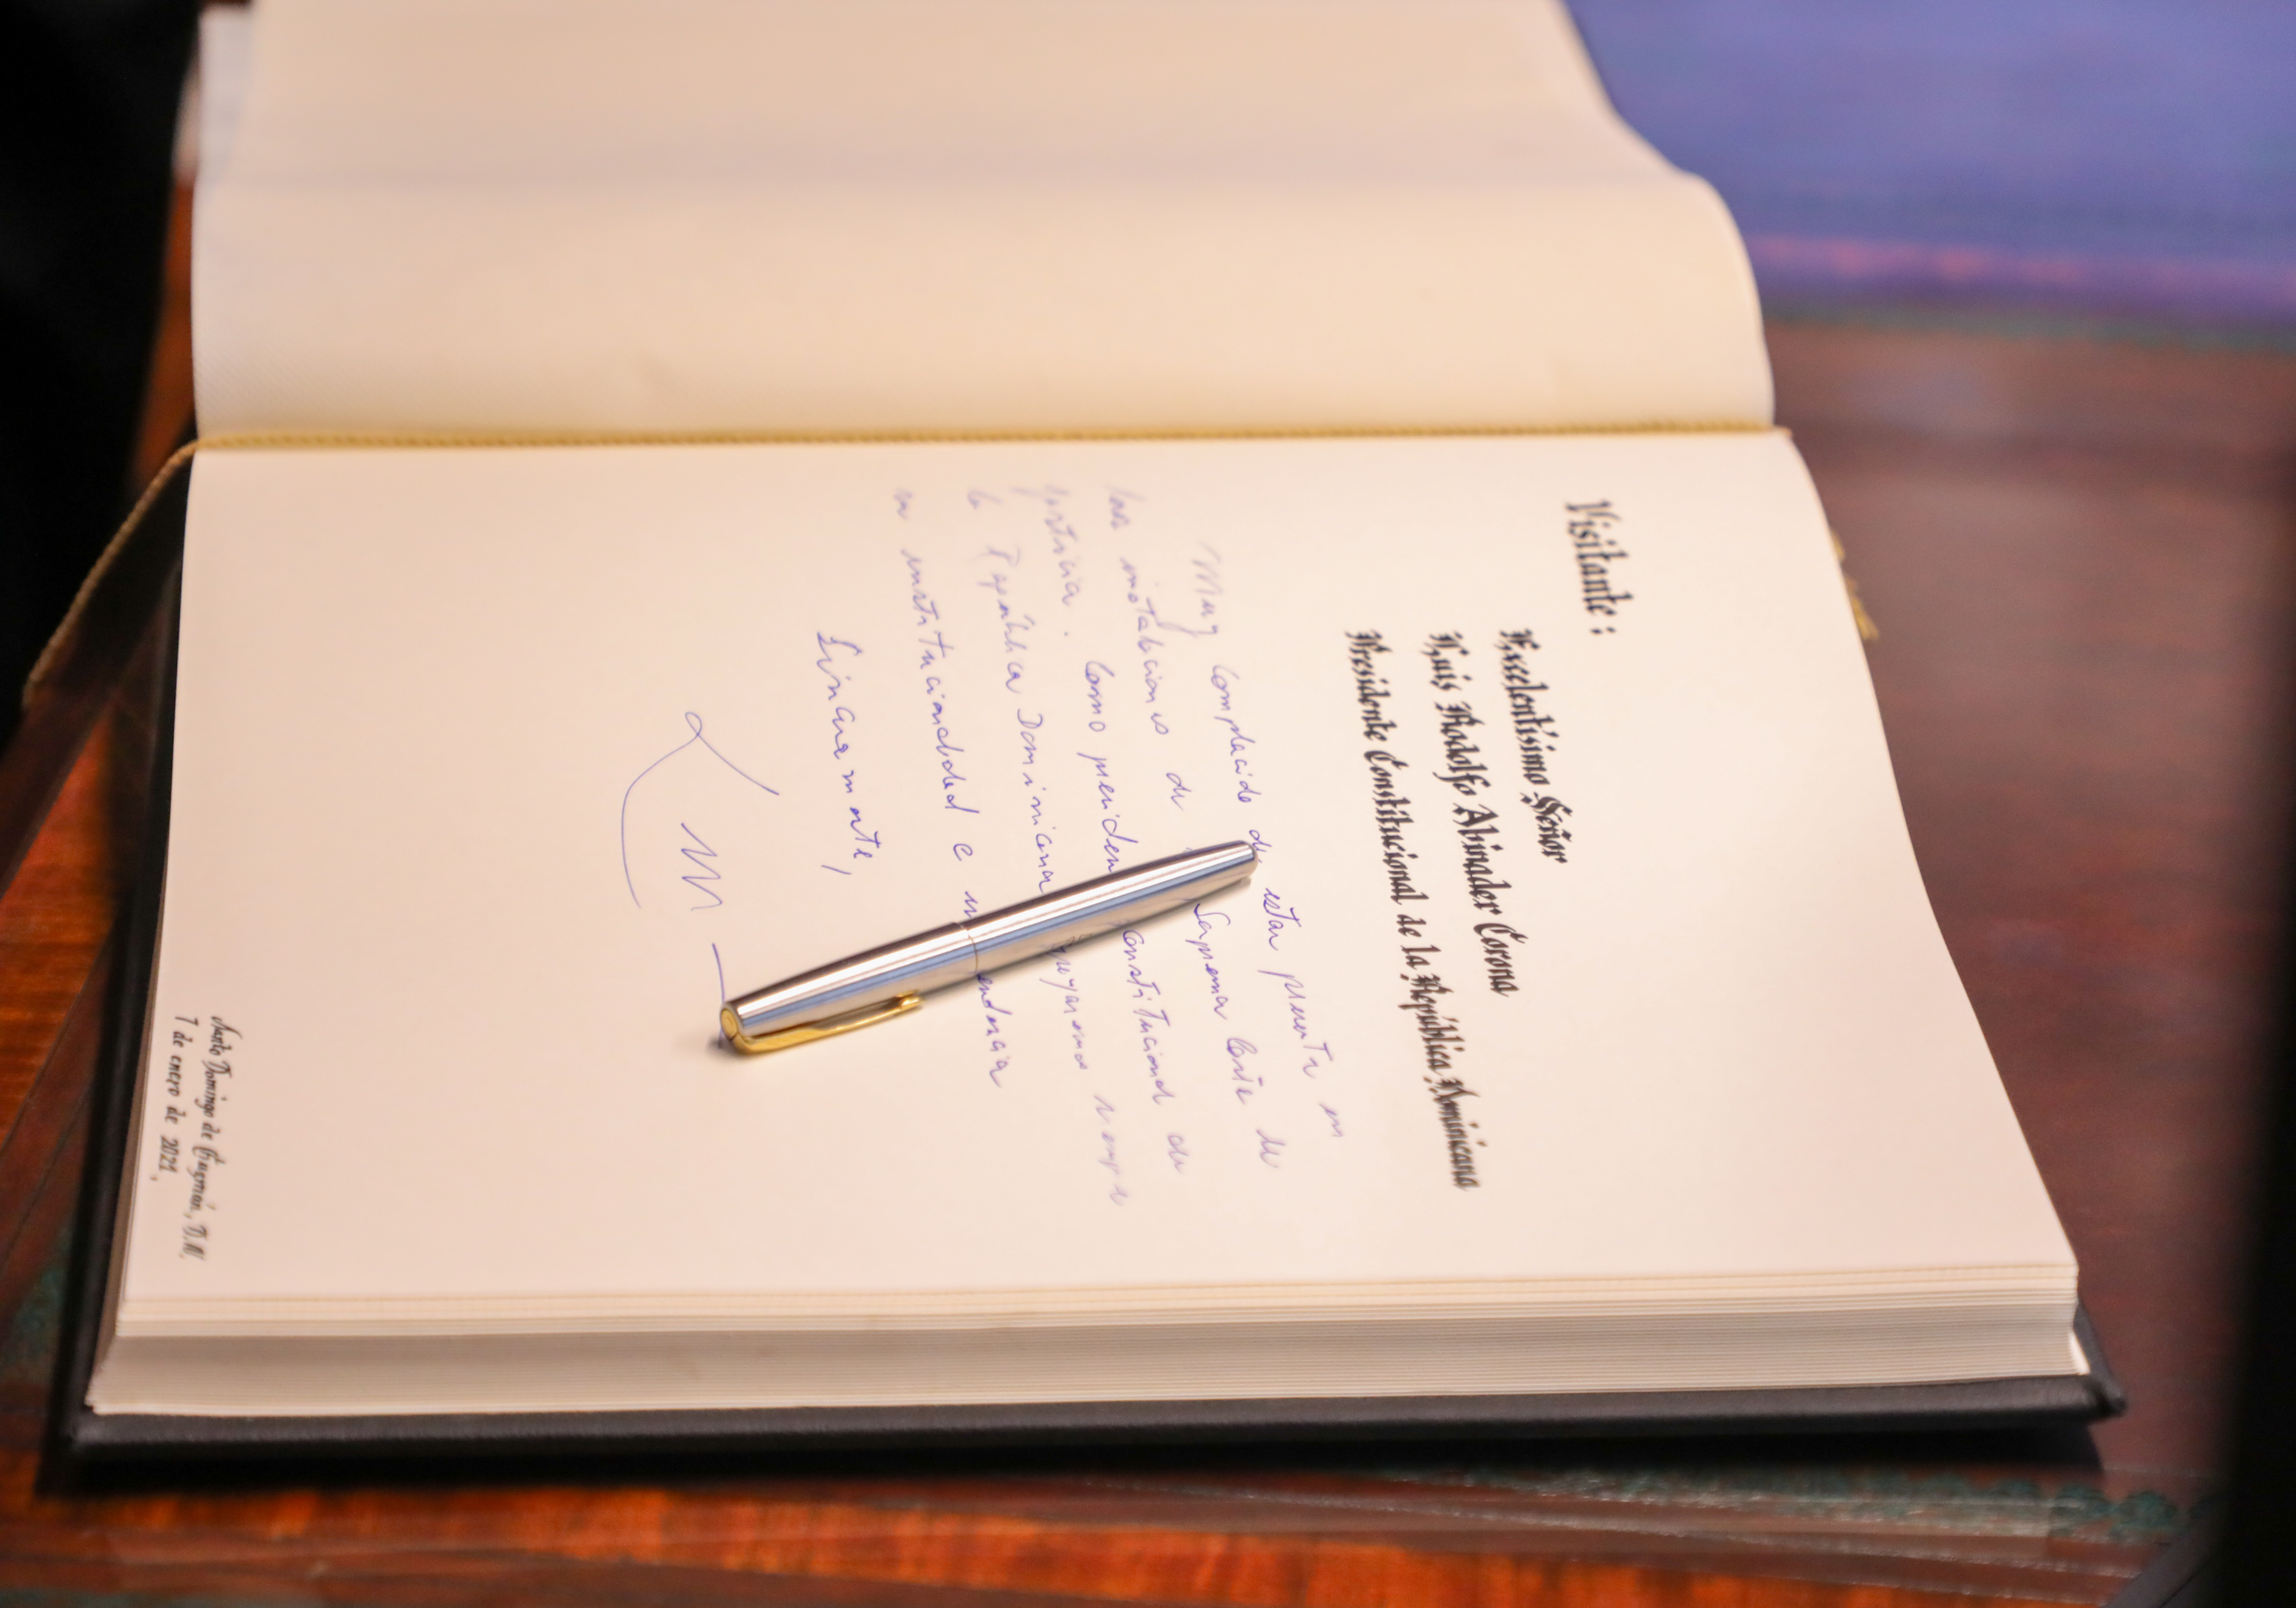 Visitante:
Excelentísimo Señor
Luis Rodolfo Abinader Corona
Presidente Constitucional de la República Dominicana
Muy complacido de estar presente en
las instalaciones de Suprema Corte de
justicia. Como presiden constitucional de
la República Dominicana apoyaremos siempre
su institucionalidad e
Sinceramente,
Santo Domingo de Guzmán, D.N.
7 de enero de 2021,